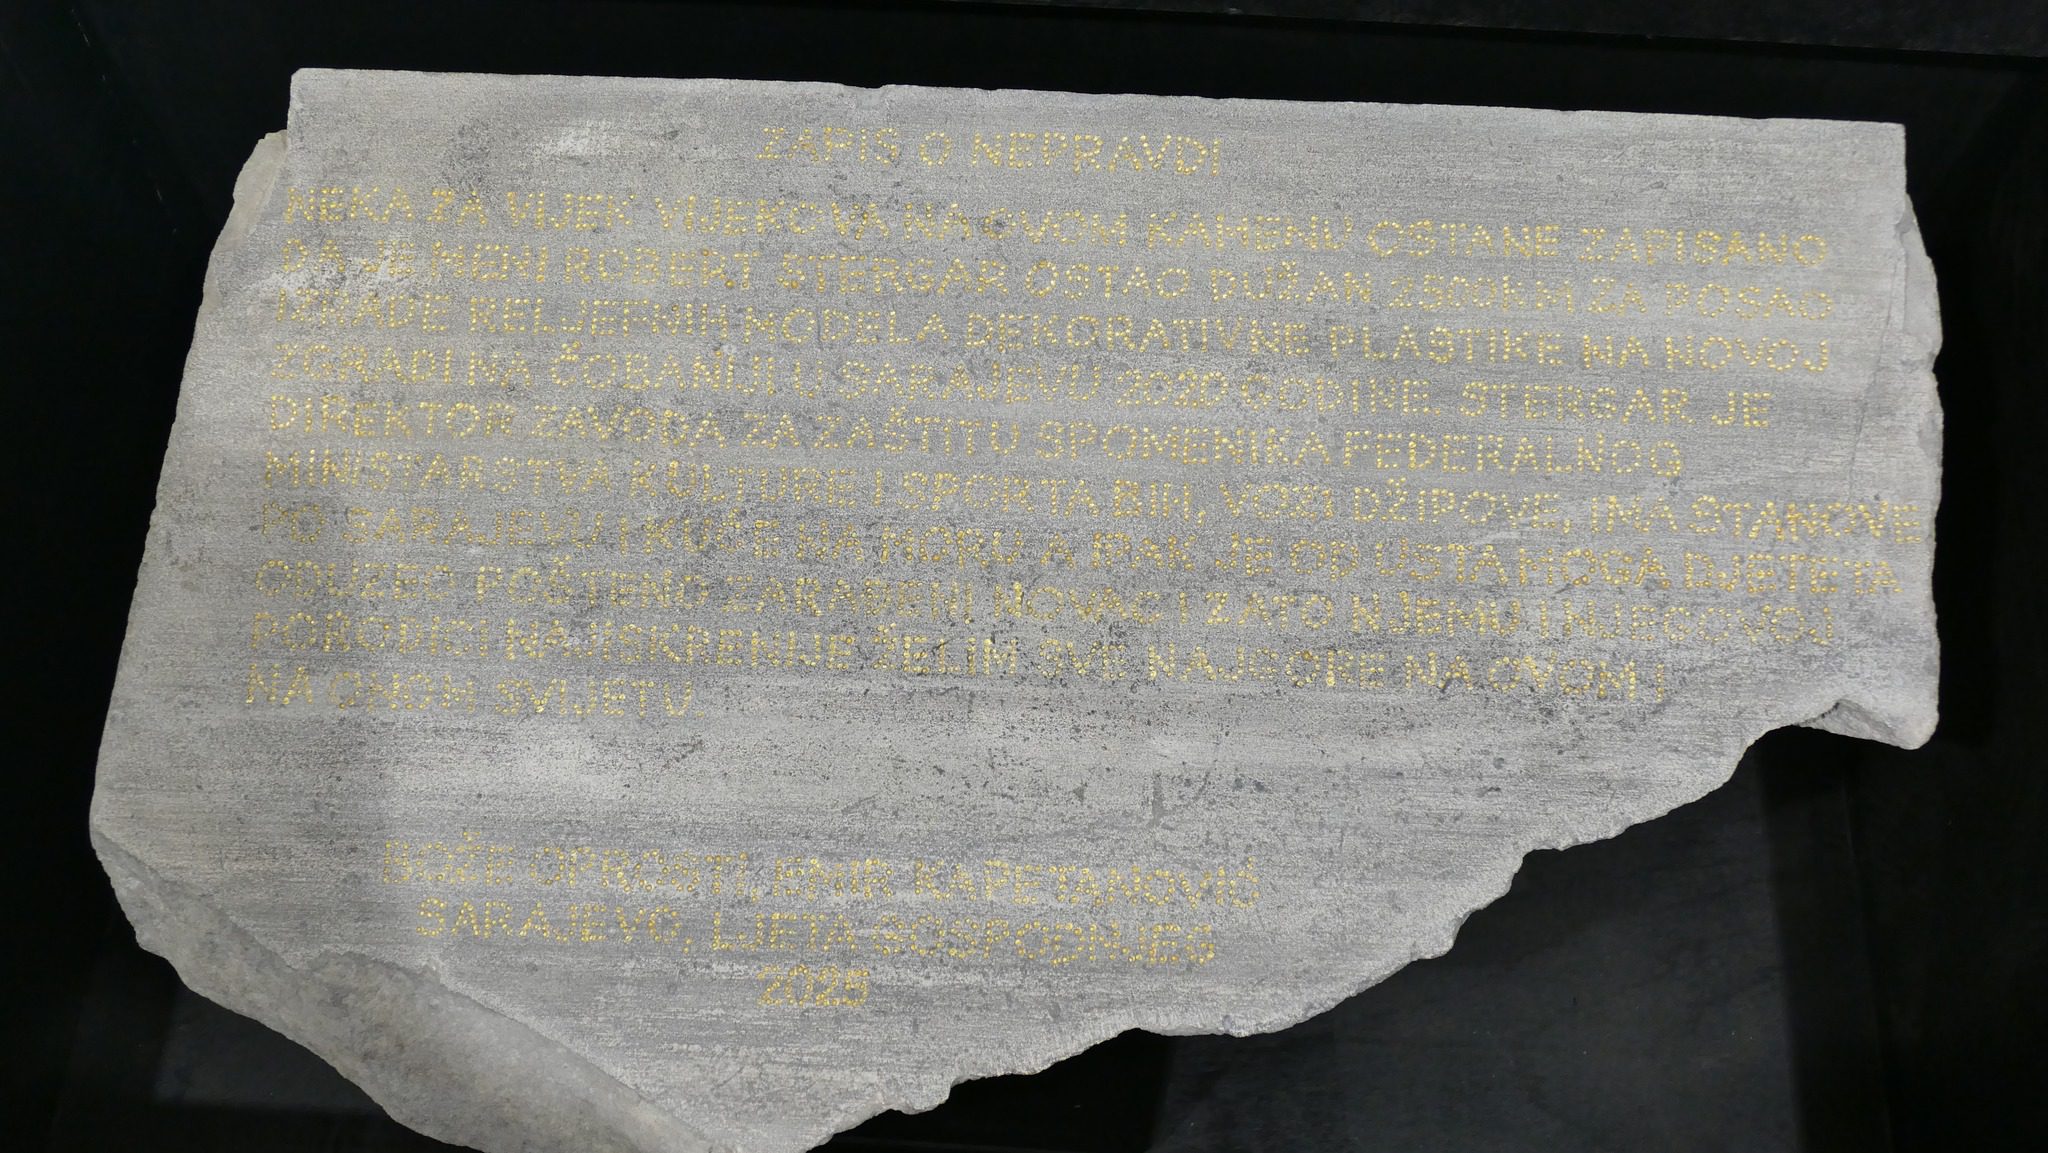 ZAPIS O NEPRAVDI
NEKA ZA VIJEK VIJEKOVA NA OVOM KAMENU OSTANE ZAPISANO
DA JE MENI ROBERT STERGAR OSTAO DUŽAN 2500KM ZA POSAO
IZRADE RELJEFNIH MODELA DEKORATIVNE PLASTIKE NA NOVOJ
ZGRADI NA ČOBANIJI U SARAJEVU 2020 GODINE. STERGAR JE
DIREKTOR ZAVODA ZA ZAŠTITU SPOMENIKA FEDERALNOG
MINISTARSTVA KULTURE I SPORTA BIH, VOZI DŽIPOVE, IMA STANOVE
PO SARAJEVU I KUĆE NA MORU A IPAK JE OD USTA MOGA DJETETA
ODUZEO POŠTENO ZARAĐENI NOVAC I ZATO NJEMU I NJEGOVOJ
PORODICI NAJISKRENIJE ŽELIM SVE NAJGORE NA OVOM I
NA ONOM SVIJETU.
BOŽE OPROSTI, EMIR KAPETANOVIĆ
SARAJEVO, LJETA GOSPODNJEG
2025